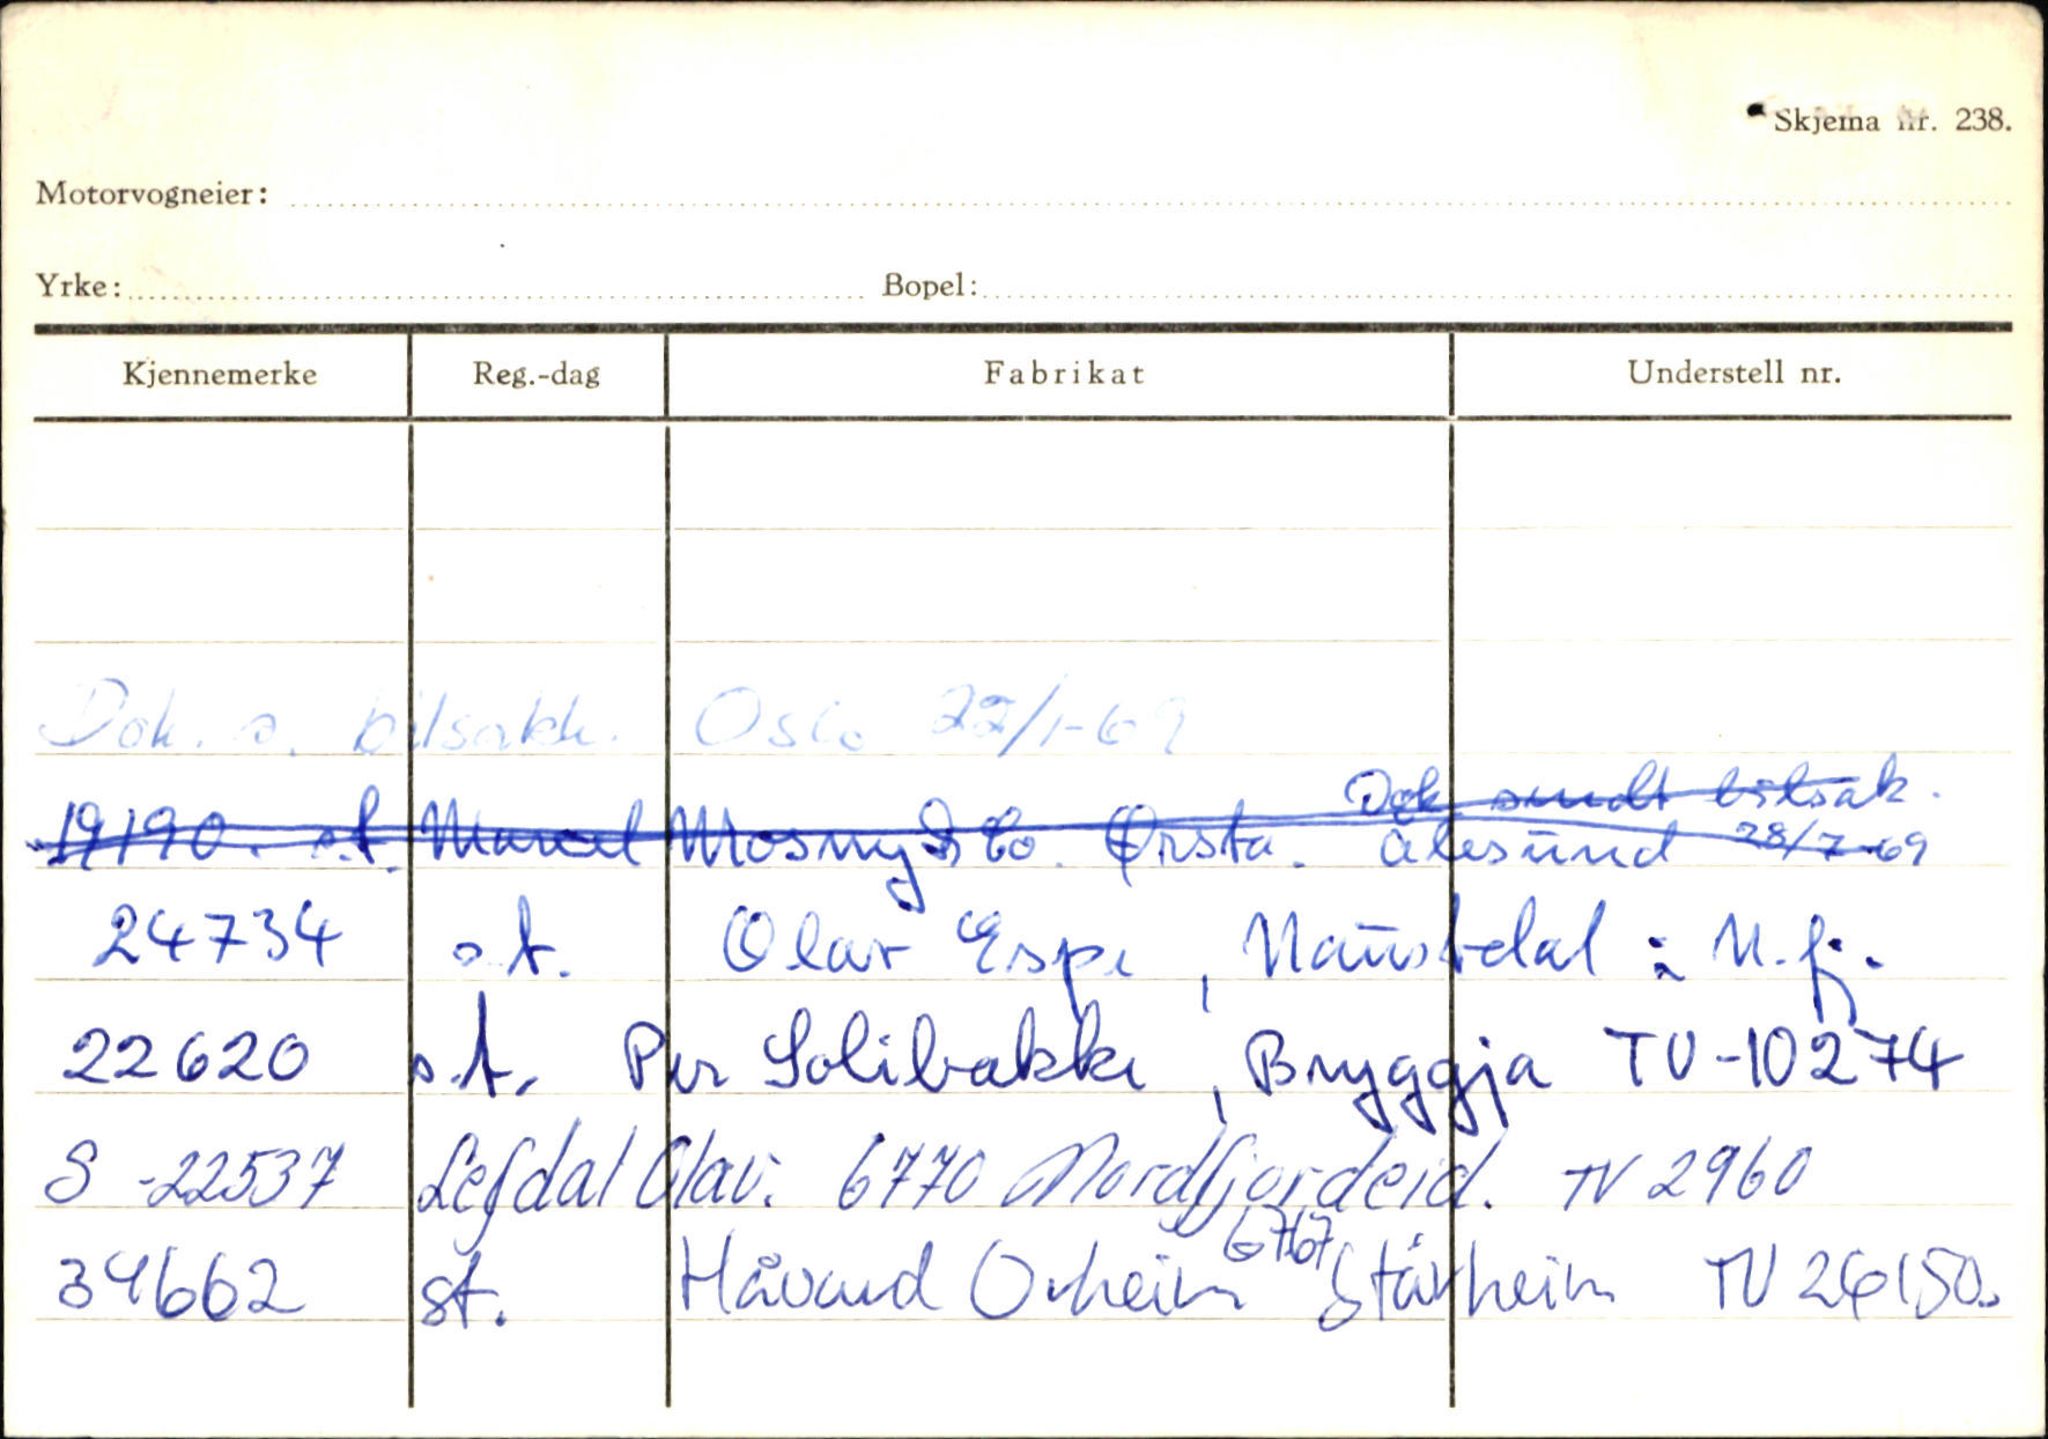 Skjema nr. 238.
Motorvogneier:
Yrke: Bopel:
Kjennemerke Reg.-dag Fabrikat Understell nr.
Dok. s. bilsakk. Oslo 22/1-69
Dok sendt bilsak.
19190. s.t. Marcel Mosny & Co. Ørsta. Ålesund 28/7-69
24734 s.t. Olav Espe, Naustdal i N.fj.
22620 s.t. Per Solibakke, Bryggja TU-10274
S-22537 Lefdal Olav. 6770 Nordfjordeid. TV 2960
6767
34662 st. Håvard Orheim Stårheim TV 26150.